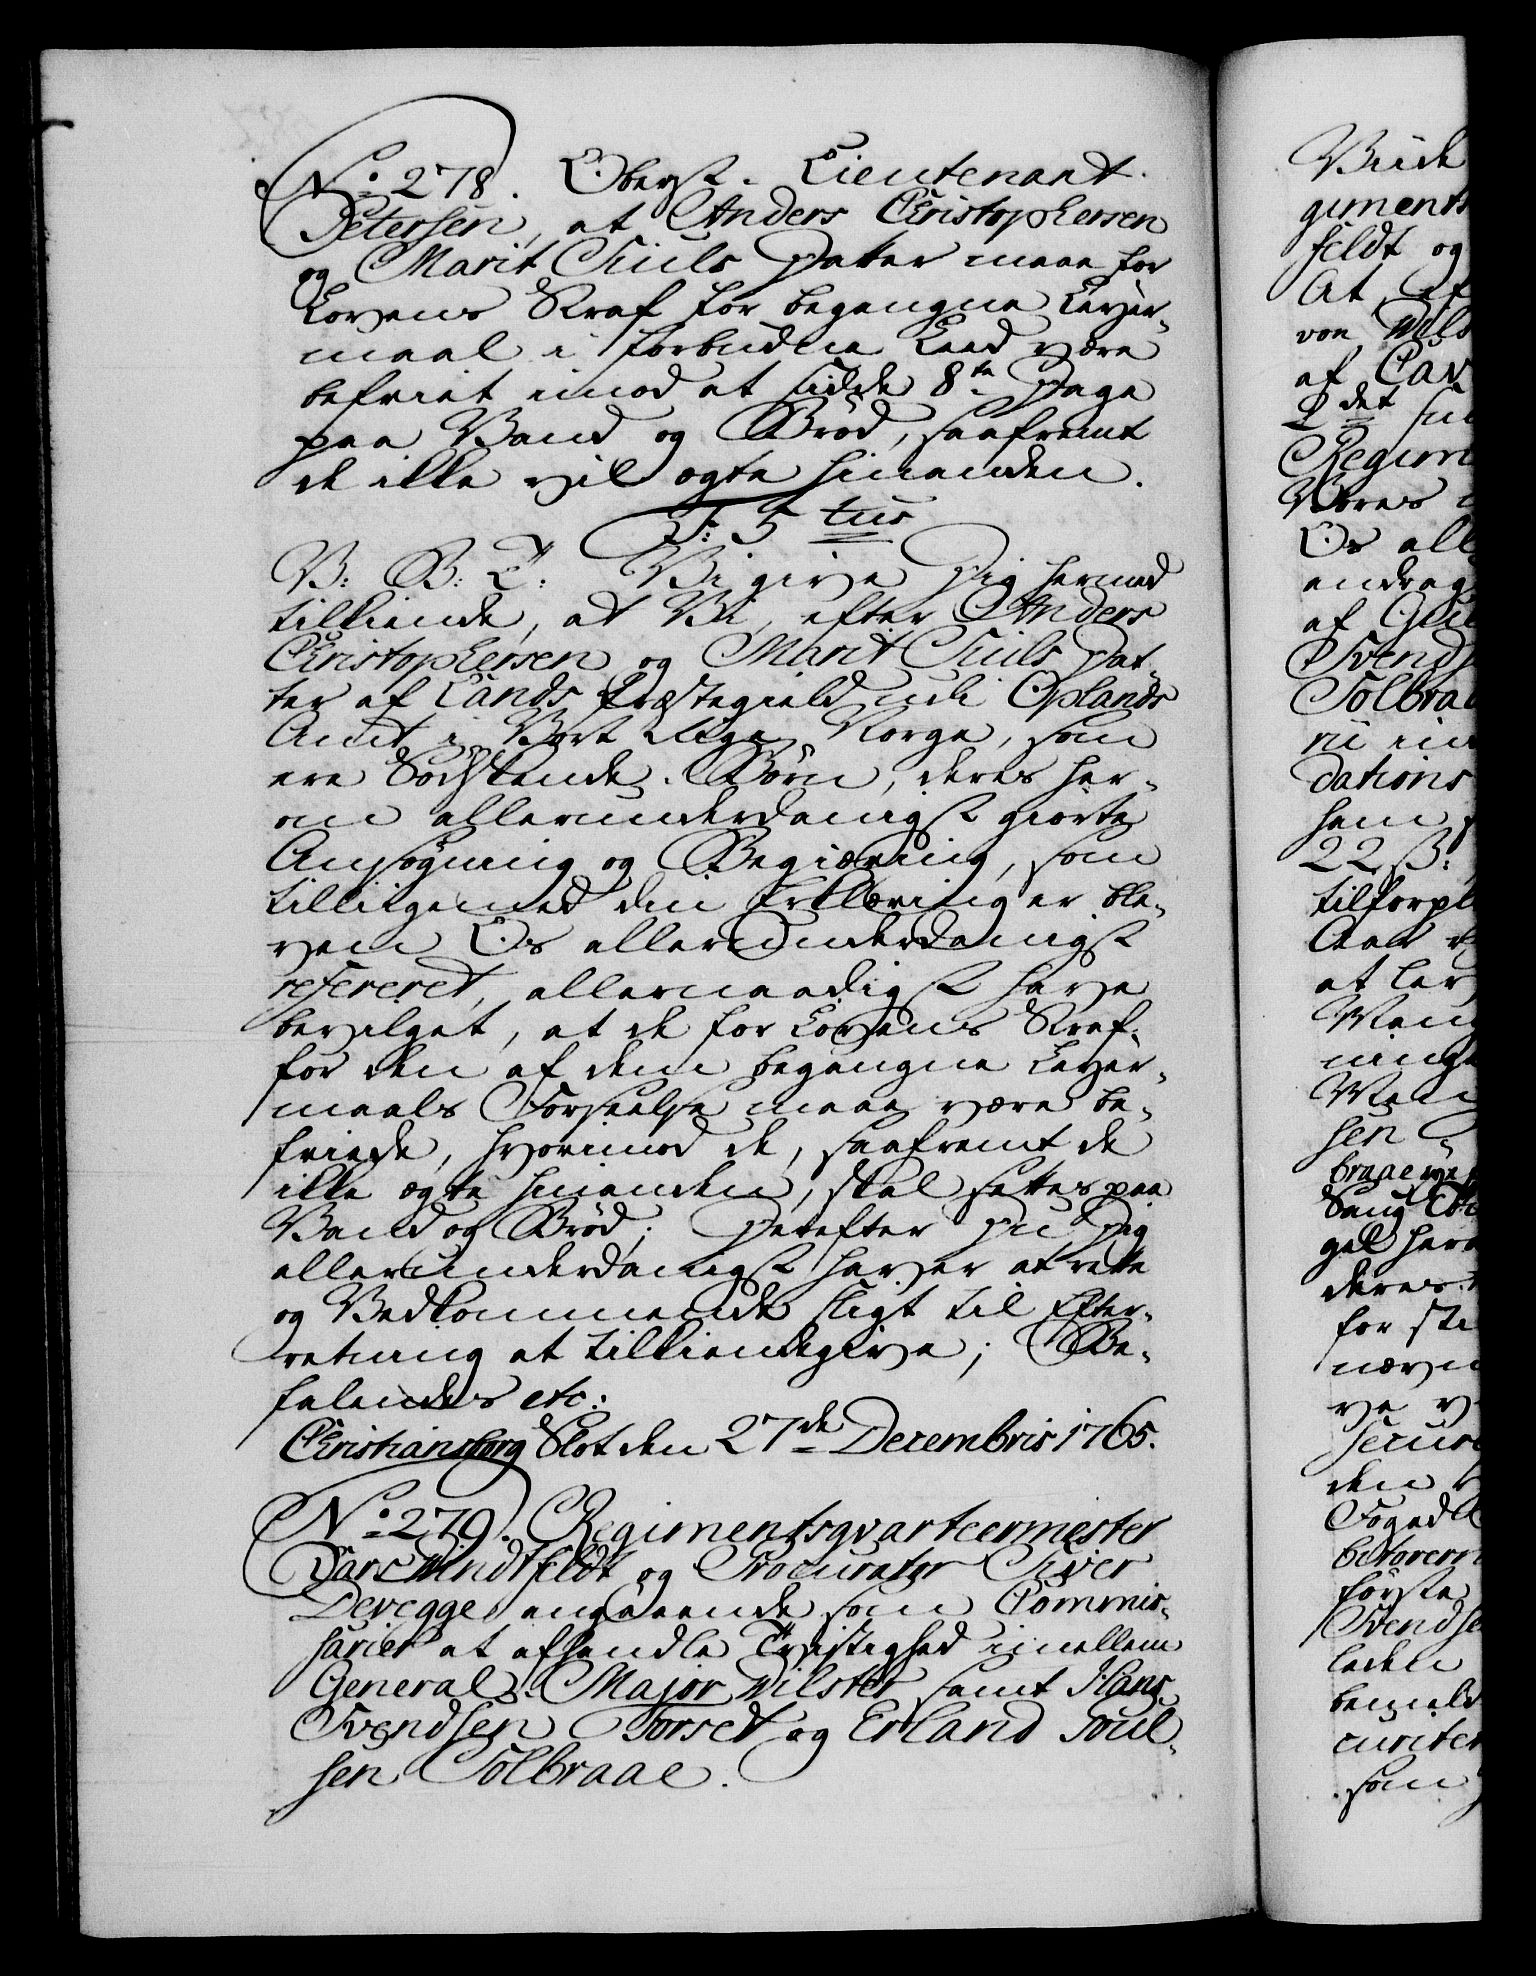 No. 278. Oberst-Lieutenant
Petersen, at Anders Christophersen
og Marit Juuls Datter maae for
Lovens Straf for begangne Leyer-
maal i forbudne Leed være
befriet imod at sidde 8te Dage
paa Vand og Brød, saafremt
de ikke vil ægte hinanden.
F: 5 tus
V: G: T: Vi give Dig hermed
tilkiende, at Vi, efter Anders
Christophersen og Marit Juuls Dat-
ter af Lands Præstegield udi Oplands
Amt i Vort Rige Norge, som
ere Sødskende-Børn, deres her-
om allerunderdanigst giorte
Ansøgning og Begiæring, som
tilligemed din Erklæring er ble-
ven Os allerunderdanigst
refereret, allernaadigst have
bevilget, at de for Lovens Straf
for den af dem begangne Leyer-
maals Forseelse maae være be-
friede, hvorimod de, saafremt de
ikke ægte hinanden, skal settes paa
Vand og Brød; Derefter Du Dig
allerunderdanigst haver at rette
og Vedkommende sligt til Efter-
retning at tilkiendegive; Be-
falendes etc:
Christiansborg Slot den 27de Decembris 1765.
No. 279. Regimentsqvarteermester
Lars Windtfeldt og Procurator Siver
Devegge angaaende som Commis-
sarier at afhandle Tvistighed imellem
General-Major Wilster samt Hans
Svendsen Torset og Erland Poul-
sen Tolbraae.
Vii de
giments
feldt og
At
von Wils
af Cav
2det
Regim
Vores
Os all
andrag
af Gul
Svends
Tolbraa
nu
dations
ham
22 ß:
tilforpl
Aar
at lev
Mang
ninge
sen
braae
Saug
gel her
deres
for sti
nærv
ve
secure
den
Foged
første
Svendse
laden
bemeld
curiter
som